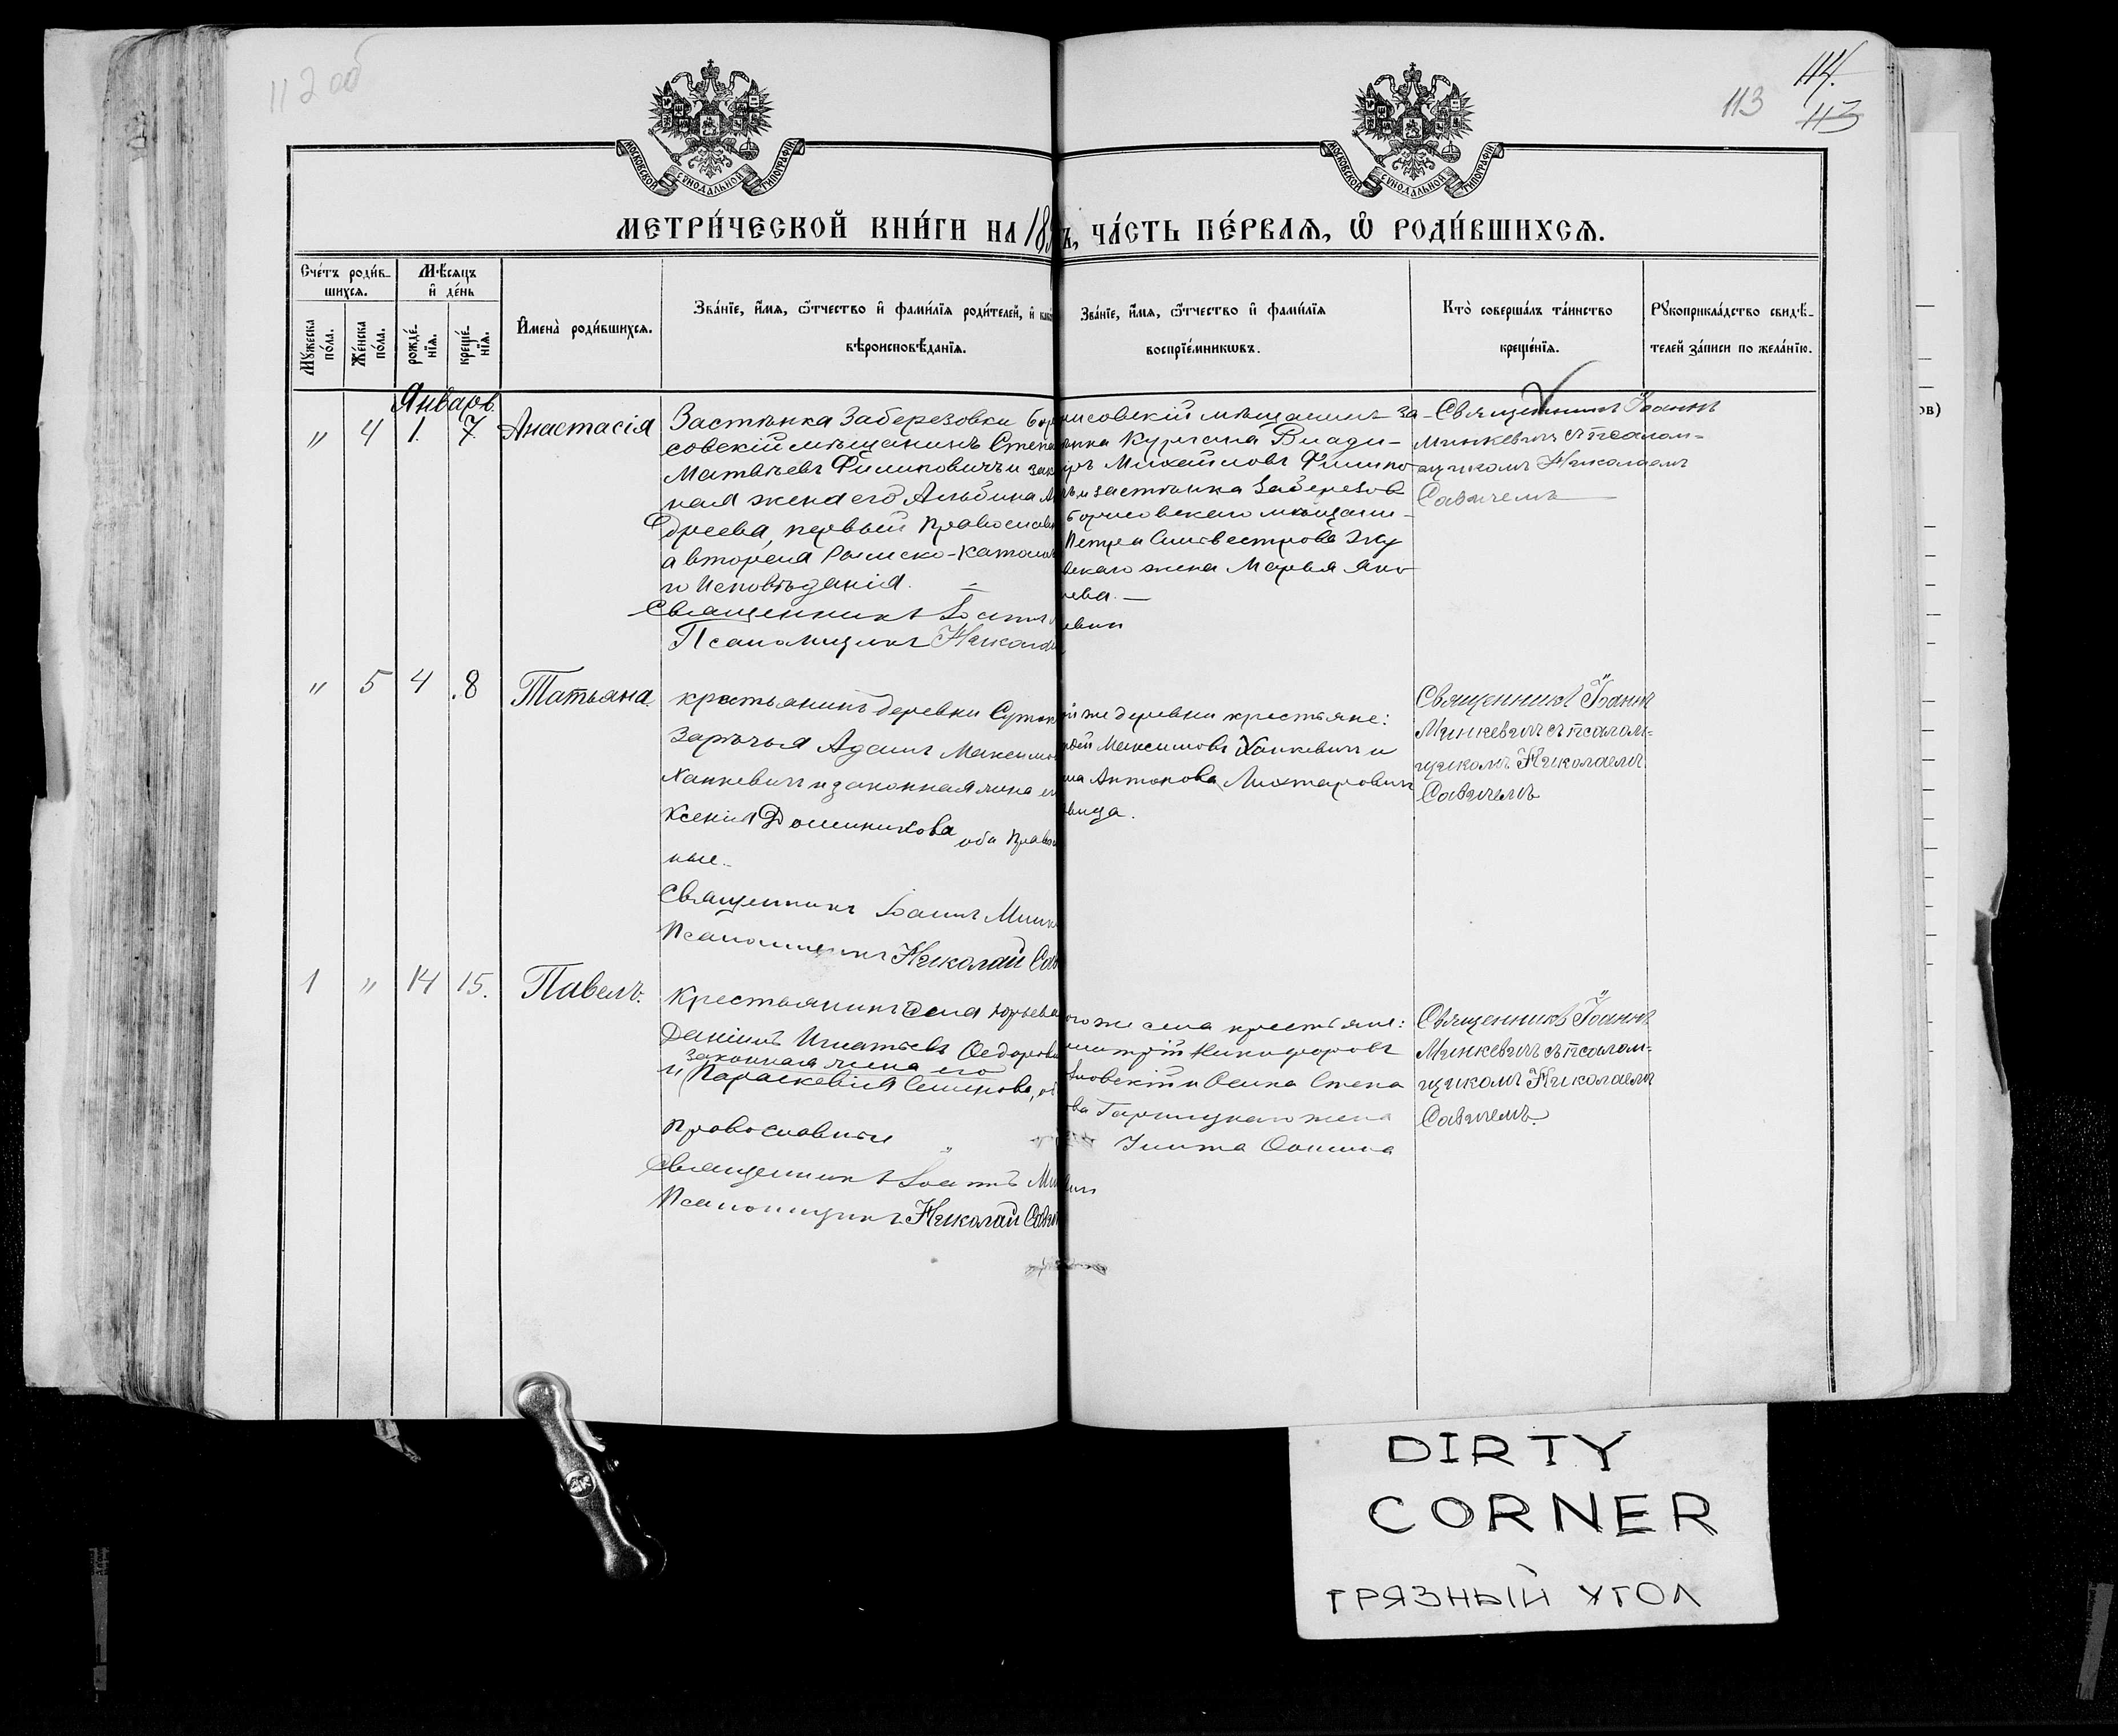 112 об
113
114.
113
МОСКОВСКОЙ СѴНОДАЛЬНОЙ ТИПОГРАФІИ
МОСКОВСКОЙ СѴНОДАЛЬНОЙ ТИПОГРАФІИ
МЕТРИ́ЧЕСКОЙ КНИ́ГИ НА 189
ъ, ЧА́СТЬ ПЕ́РВАЯ, Ѡ҆ РОДИ́ВШИХСЯ.
Сче́тъ роди́в-
шихся.
Мѣ́сяцъ
и҆ де́нь
Мꙋ́жеска
по́ла.
Же́нска
по́ла.
рожде́-
нїя.
креще́-
нїя.
И҆мена̀ роди́вшихся.
Зва́нїе, и҆́мя, ѻ҆́тчество и҆ фами́лїя роди́телей, и҆ како
вѣроисповѣ́данїя.
Зва́нїе, и҆́мя, ѻ҆́тчество и҆ фами́лїя
воспрїе́мникѡвъ.
Кто̀ соверша́лъ та́инство
креще́нїя.
Рꙋкоприкла́дство свидѣ́-
телей за́писи по жела́нїю.
Январь.
" 4 1. 7 Анастасія
Застѣнка Заберезовки Бори
совскій мѣщанинъ Степа
Матвѣевъ Филиповичъ и зак
ная жена его Альбина Ан
дреева, первый Православн
а вторая Римско-Католич
го Исповѣданія.
Священникъ Іоаннъ
Псаломщикъ Николай
исовскій мѣщанинъ за-
нка Кургана Влади-
ръ Михайловъ Филипо
ъ и застѣнка Заберезов
Борисовскаго мѣщани-
Петра Сильвестрова Жу
скаго жена Марья Яко
лева. —
евич
Священникъ Іоаннъ
Минкевичъ съ псалом=
щикомъ Николаемъ
Савичемъ
" 5 4 8 Татьяна.
крестьянинъ деревни Суток
Зарѣчья Адамъ Максимов
Ханкевич и законная жена его
Ксенія Доминикова оба Право
ные.
Священникъ Іоаннъ Минк
Псаломщикъ Николай Сав
й же деревни крестьяне:
дей Максимовъ Ханкевич и
на Антонова Лихтарович
вица.
Священникъ Іоаннъ
Минкевичъ съ псалом=
щикомъ Николаемъ
Савичемъ
1 " 14 15. Павелъ.
Крестьянинъ села Юрьева
Даніилъ Игнатьевъ Федорови
законная жена его
и Параскевія Семенова, об
Православные
Священникъ Іоаннъ Мин
Псаломщикъ Николай Савич
ого же села крестьяне:
митрій Никифоровъ
новскій и Осипа Степа
ова Гарницкаго жена
Улита Фомина
вич
Священникъ Іоаннъ
Минкевичъ съ псалом=
щикомъ Николаемъ
Савичемъ.
ов)
DIRTY
CORNER
ГРЯЗНЫЙ УГОЛ